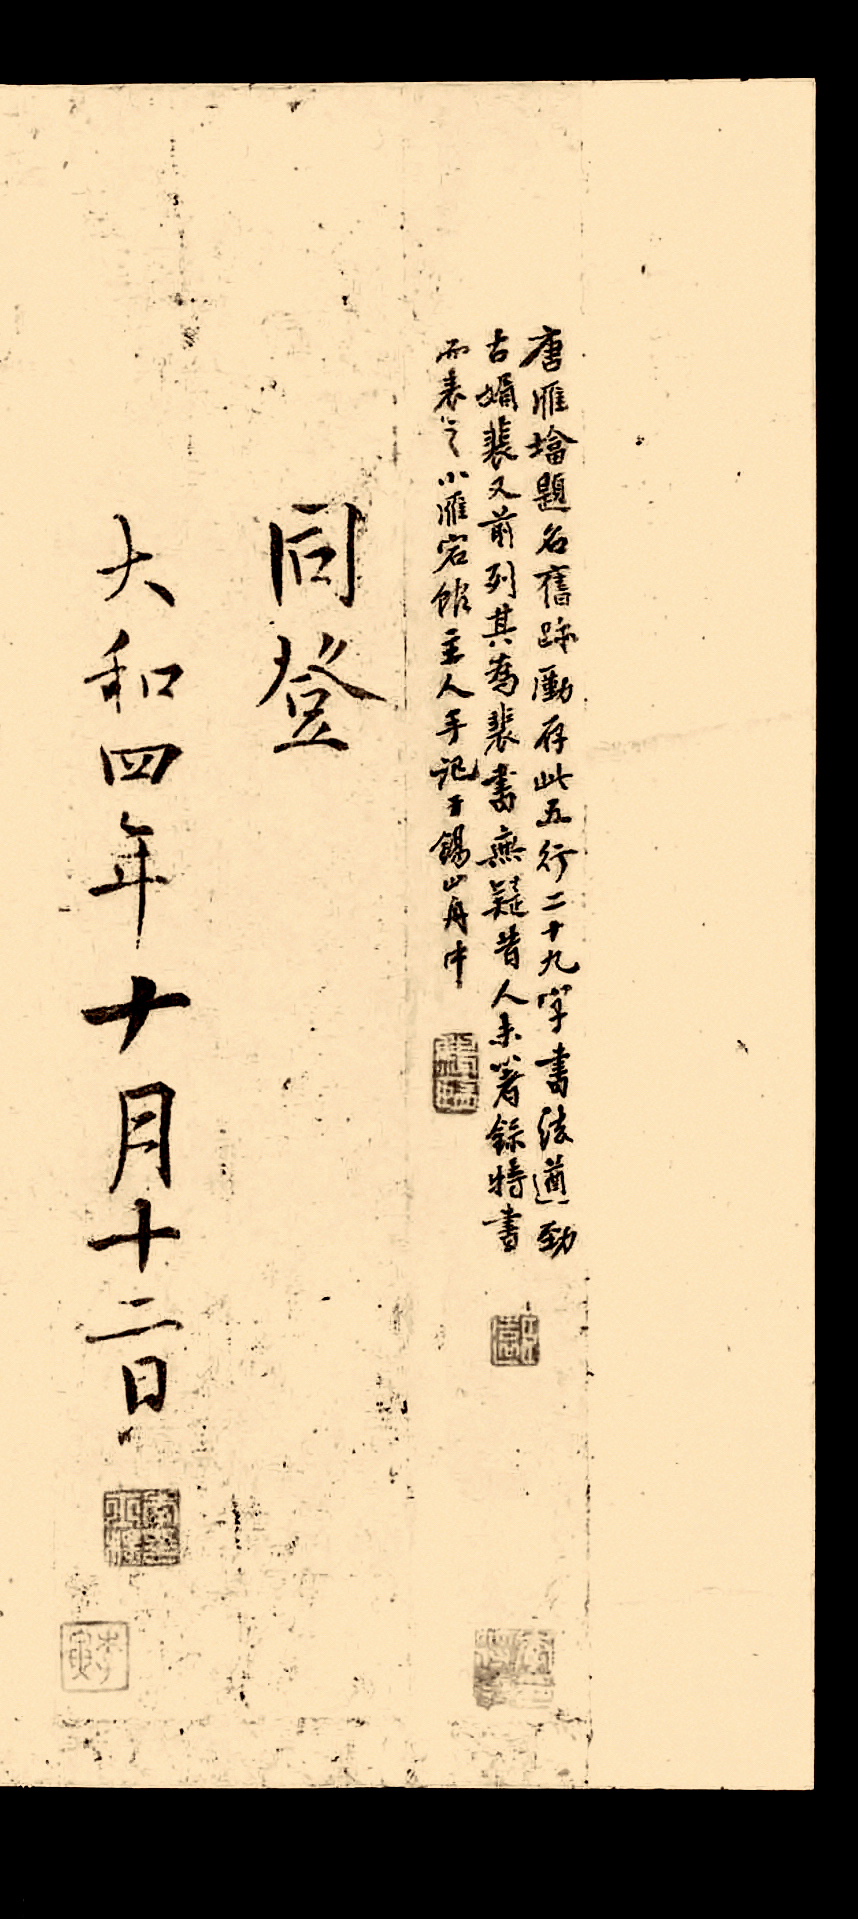 唐雁塔題名舊跡勵存此五行二十九字書法遒勁
古媚裴又前列其為裴書無疑昔人未著錄特書
而表之小雁宕館主人手記于錫山舟中
同登
大和四年十月十二日